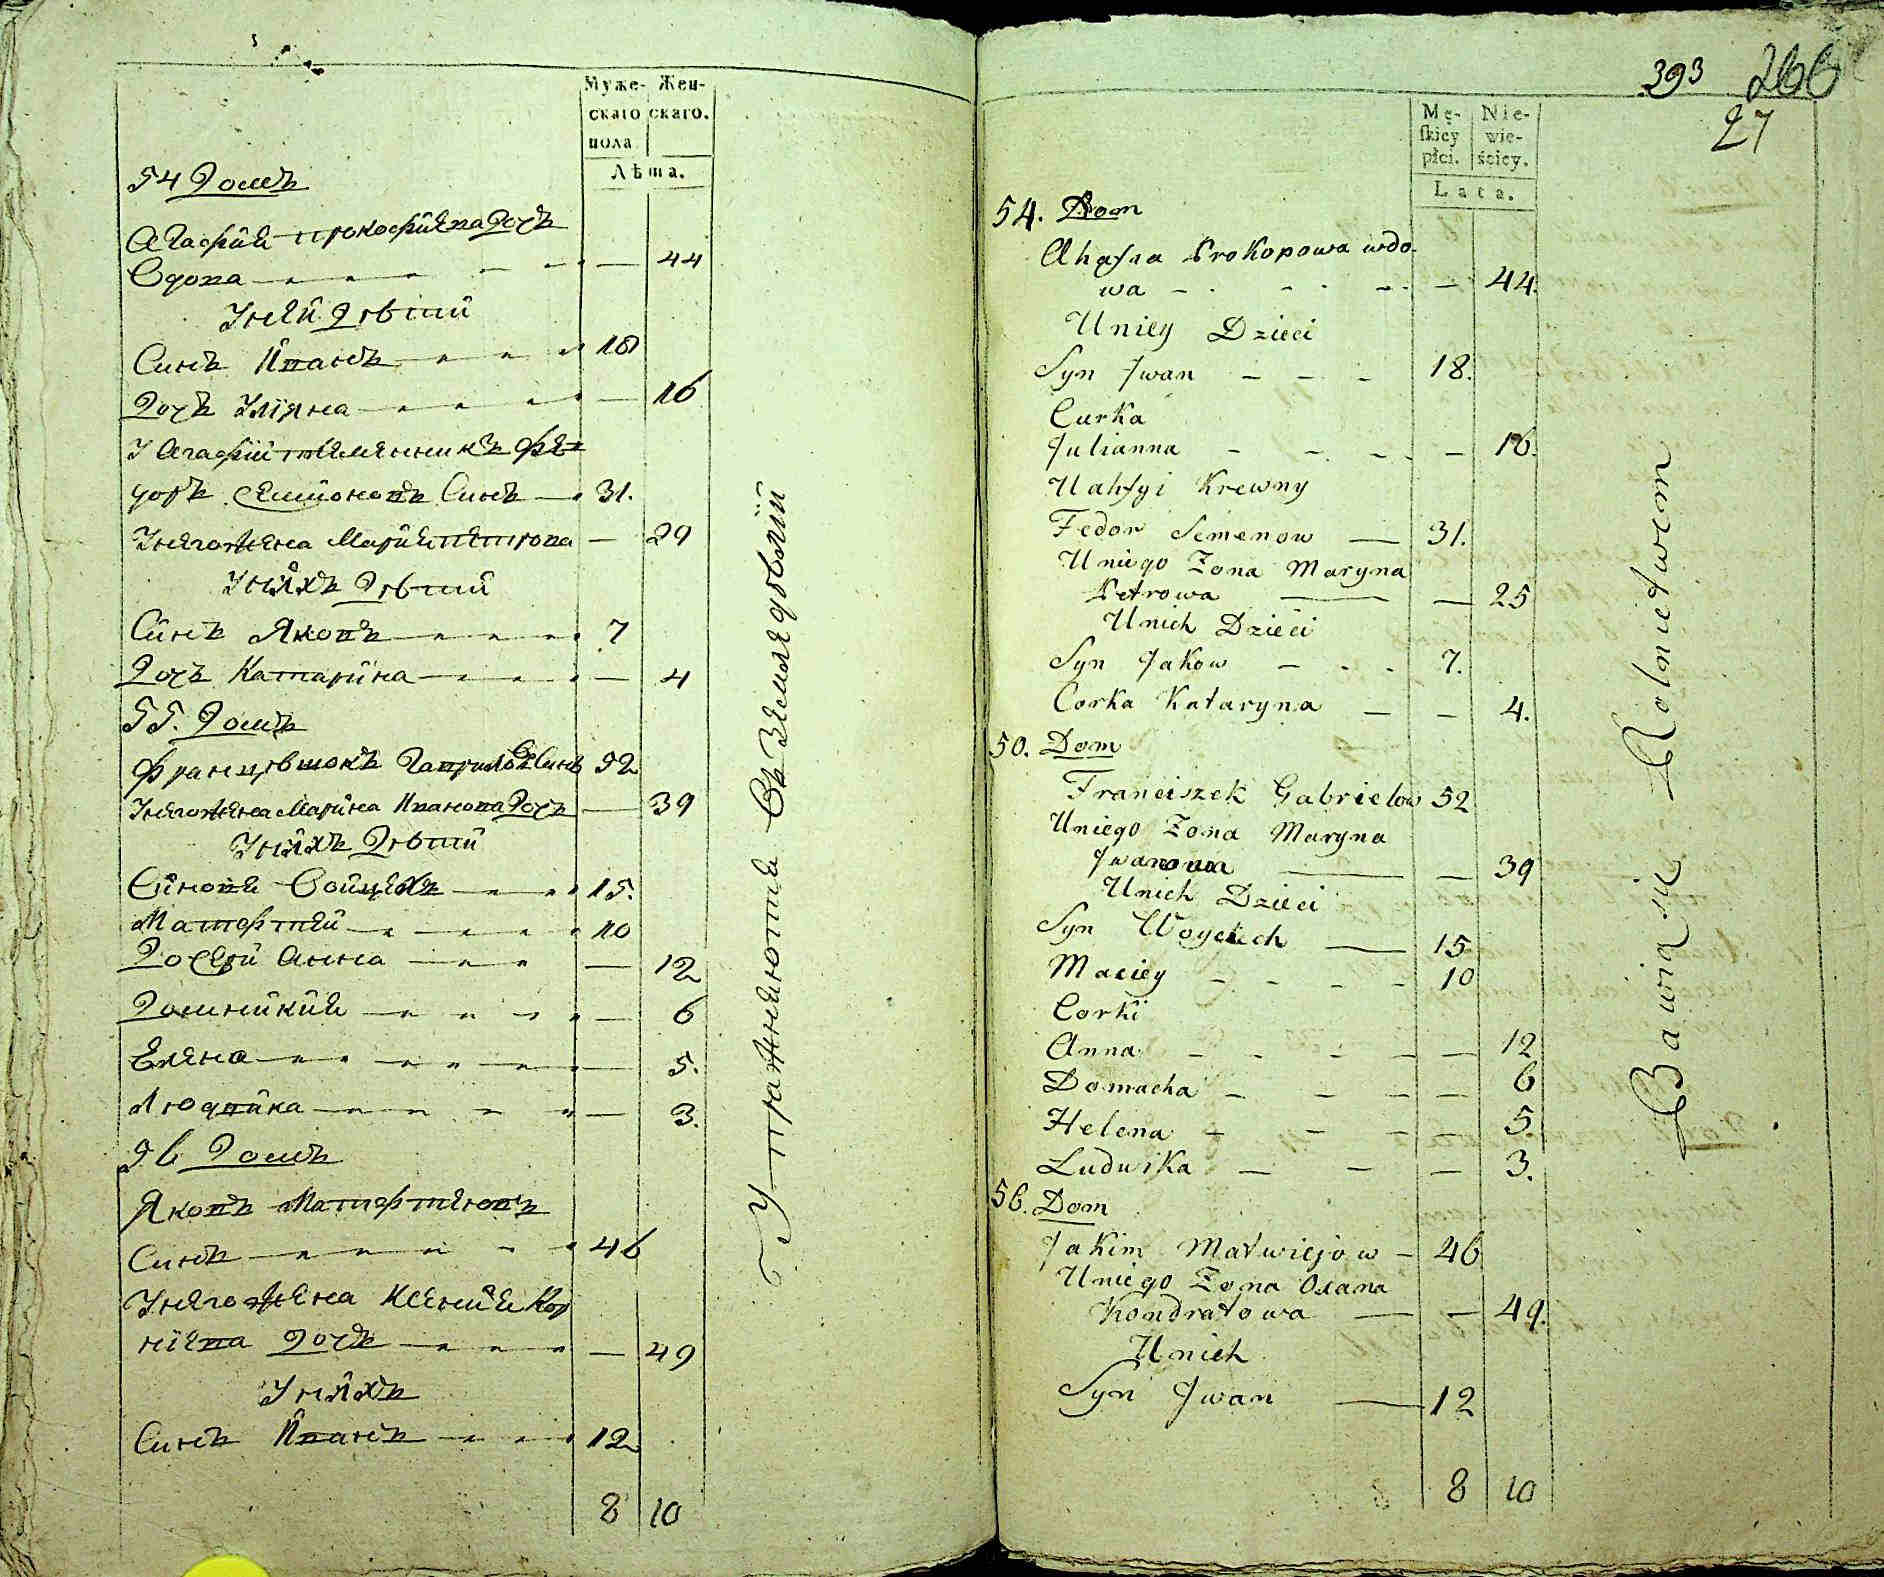 Муже- Жен-
скаго скаго.
пола
Лѣта.
54 Домъ
Агафия прокофиева Дочъ
Вдова — 44
У ней Дѣти
Синъ Иванъ 18
Дочъ Улияна — 16
У Агафии племенникъ Фе
доръ Семионовъ Синъ 31.
У него Жена Мария петрова — 29
У нихъ Дѣти
Синъ Яковъ 7
Дочъ Катарина — 4
55. Домъ
Францѣшокъ Гавриловъ Синъ 52
У него Жена Марина Иванова Дочъ — 39
У нихъ Дѣти
Синови Войцехъ 15.
Матфтей 10
Дочери Анна — 12
Домникия — 6
Елена — 5.
Людвика — 3.
56 Домъ
Яковъ Матфтеювъ
Синъ 46
У него Жена Ксения Кор
ниева Дочъ — 49
У нихъ
Синъ Иванъ 12
8 10
Упражнаются въ Земляделии
393 266
27
Mę- Nie-
skiey wie-
płci. ściey.
Lata.
54. Dom
Ahafia Prokopowa wdo-
wa — 44.
Uniey Dzieci
Syn Jwan 18.
Curka
Julianna — 16.
Uahfyi Krewny
Fedor Semenow — 31.
Uniego Zona Maryna
Petrowa — 25
Unich Dzieci
Syn Jakow 7.
Corka Kataryna — 4.
50. Dom
Franciszek Gabrielow 52
Uniego Zona Maryna
Jwanowa — 39
Unich Dzieci
Syn Woyciech — 15
Maciey 10
Corki
Anna — 12
Domacha — 6
Helena — 5.
Ludwika — 3.
56. Dom
Jakim Matwiejow — 46
Uniego Zona Oxana
Kondratowa — 49.
Unich
Syn Jwan — 12
8 10
Bawią się Rolnictwem